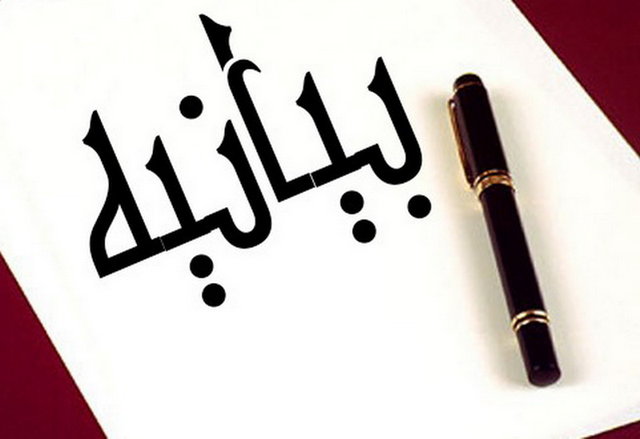 بیانیه